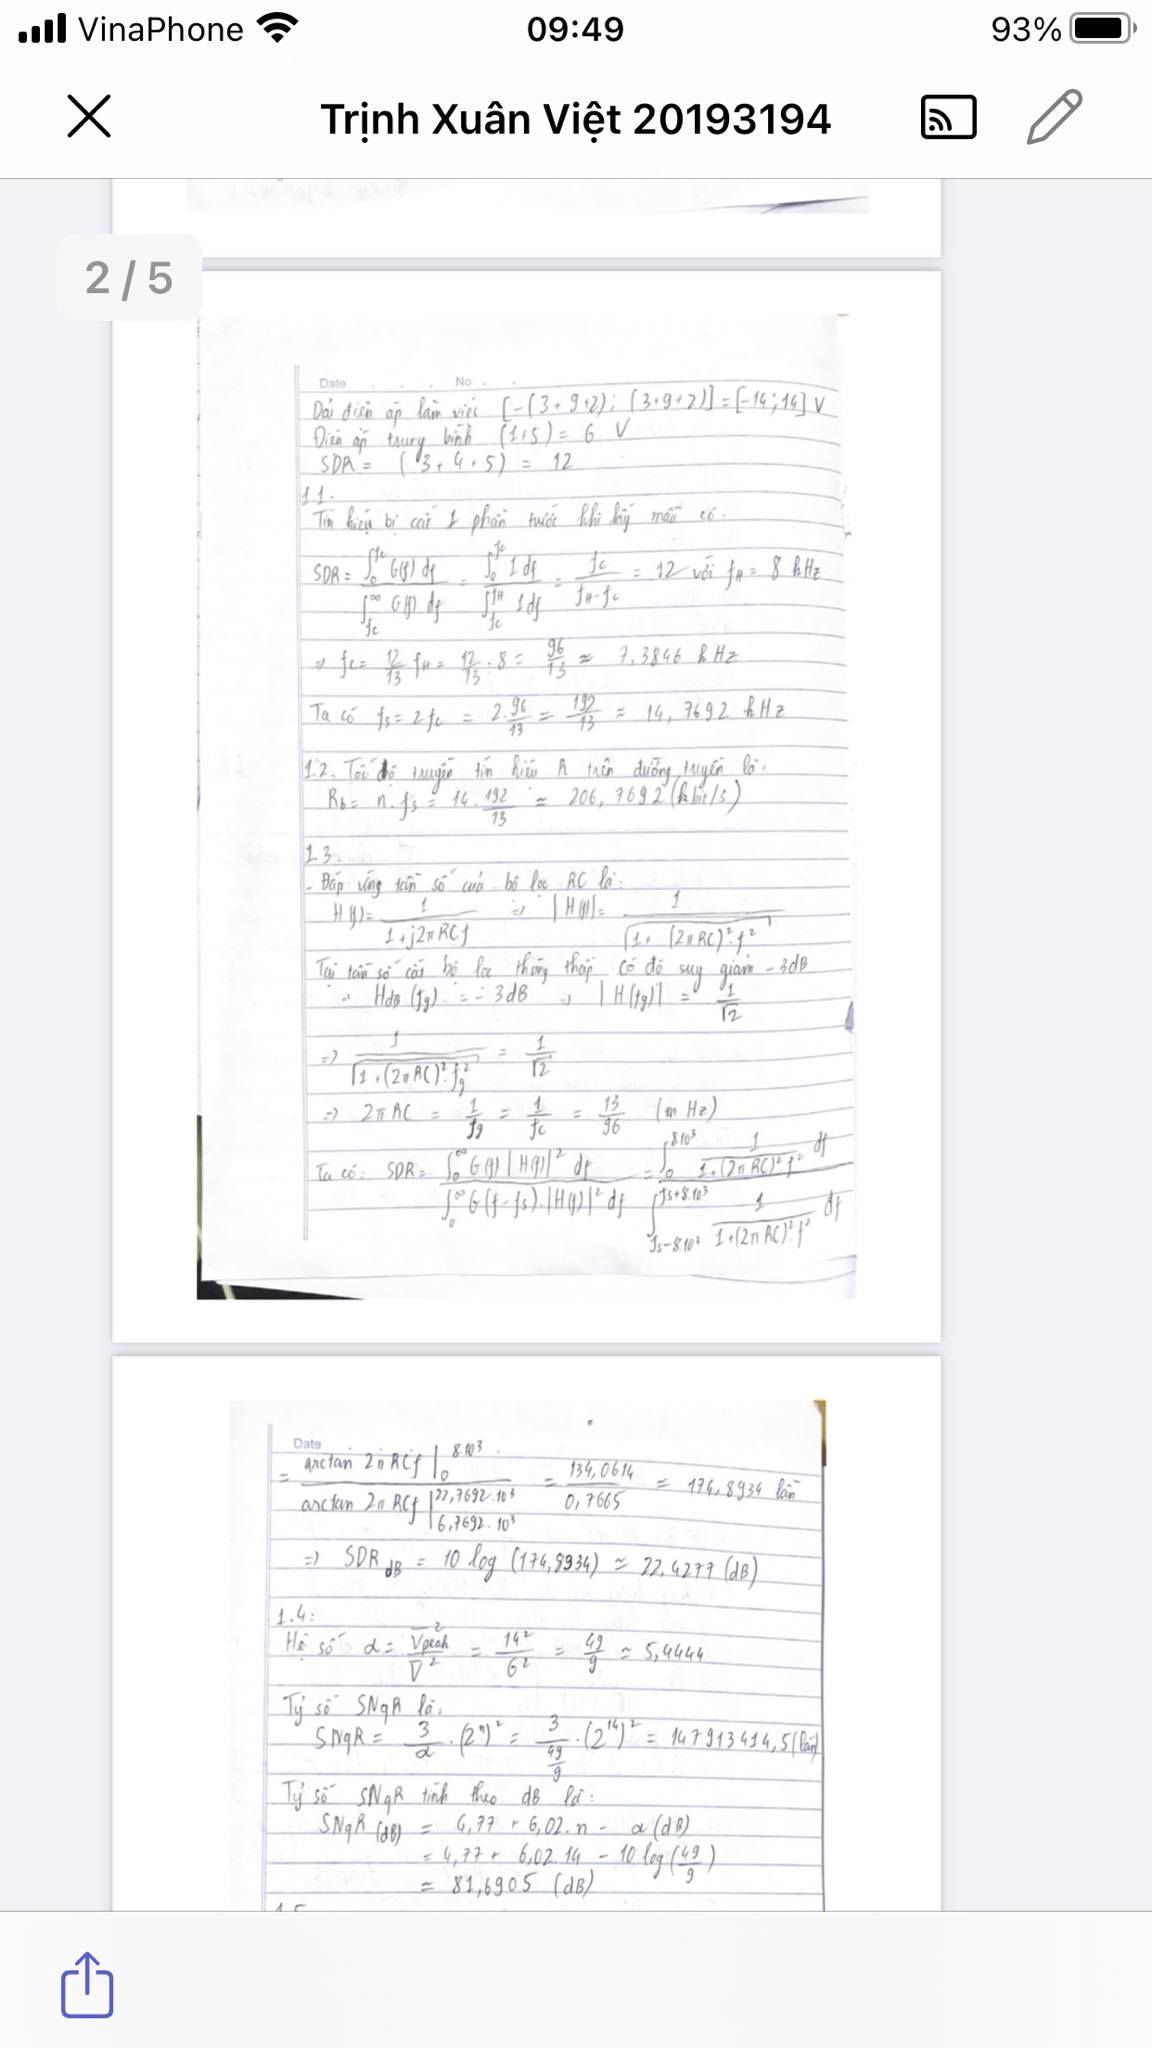 VinaPhone 09:49 93%
Trịnh Xuân Việt 20193194
2 / 5
Date . . . No . .
Dải điện áp làm việc [-(3+9+2); (3+9+2)] = [-14; 14] V
Điện áp trung bình (1+5) = 6 V
SDR = (3+4+5) = 12
1.1.
Tín hiệu bị cắt 1 phần trước khi lấy mẫu có.
SDR = ∫₀^fc G(f) df / ∫_fc^∞ G(f) df = ∫₀^fc 1 df / ∫_fc^fH 1 df = fc / (fH - fc) = 12 với fH = 8 kHz
=> fc = 12/13 fH = 12/13 . 8 = 96/13 ≈ 7,3846 kHz
Ta có fs = 2fc = 2. 96/13 = 192/13 ≈ 14,7692 kHz
1.2. Tốc độ truyền tín hiệu R trên đường truyền là:
Rb = n.fs = 14. 192/13 ≈ 206,7692 (kbit/s)
1.3.
- Đáp ứng tần số của bộ lọc RC là:
H(f) = 1 / (1+j2πRCf) => |H(f)| = 1 / √(1+(2πRC)².f²)
Tại tần số cắt bộ lọc thông thấp có độ suy giảm -3dB
=> HdB(fg) = -3dB => |H(fg)| = 1/√2
=> 1 / √(1+(2πRC)².fg²) = 1/√2
=> 2πRC = 1/fg = 1/fc = 13/96 (m Hz)
Ta có: SDR = ∫₀^∞ G(f)|H(f)|² df / ∫₀^∞ G(f-fs).|H(f)|² df = ∫₀^8.10³ 1/(1+(2πRC)².f²) df / ∫_fs-8.10³^fs+8.10³ 1/(1+(2πRC)².f²) df
Date
= arctan 2πRCf |₀^8.10³ / arctan 2πRCf |_6,7692.10³^22,7692.10³ = 134,0614 / 0,7665 ≈ 174,8934 lần
=> SDR dB = 10 log (174,8934) ≈ 22,4277 (dB)
1.4:
Hệ số α = Vpeak² / V̄² = 14²/6² = 49/9 ≈ 5,4444
Tỷ số SNqR là:
SNqR = 3/α . (2ⁿ)² = 3/(49/9) . (2¹⁴)² = 147913414,5 (lần)
Tỷ số SNqR tính theo dB là:
SNqR (dB) = 4,77 + 6,02.n - α(dB)
= 4,77 + 6,02.14 - 10 log(49/9)
≈ 81,6905 (dB)